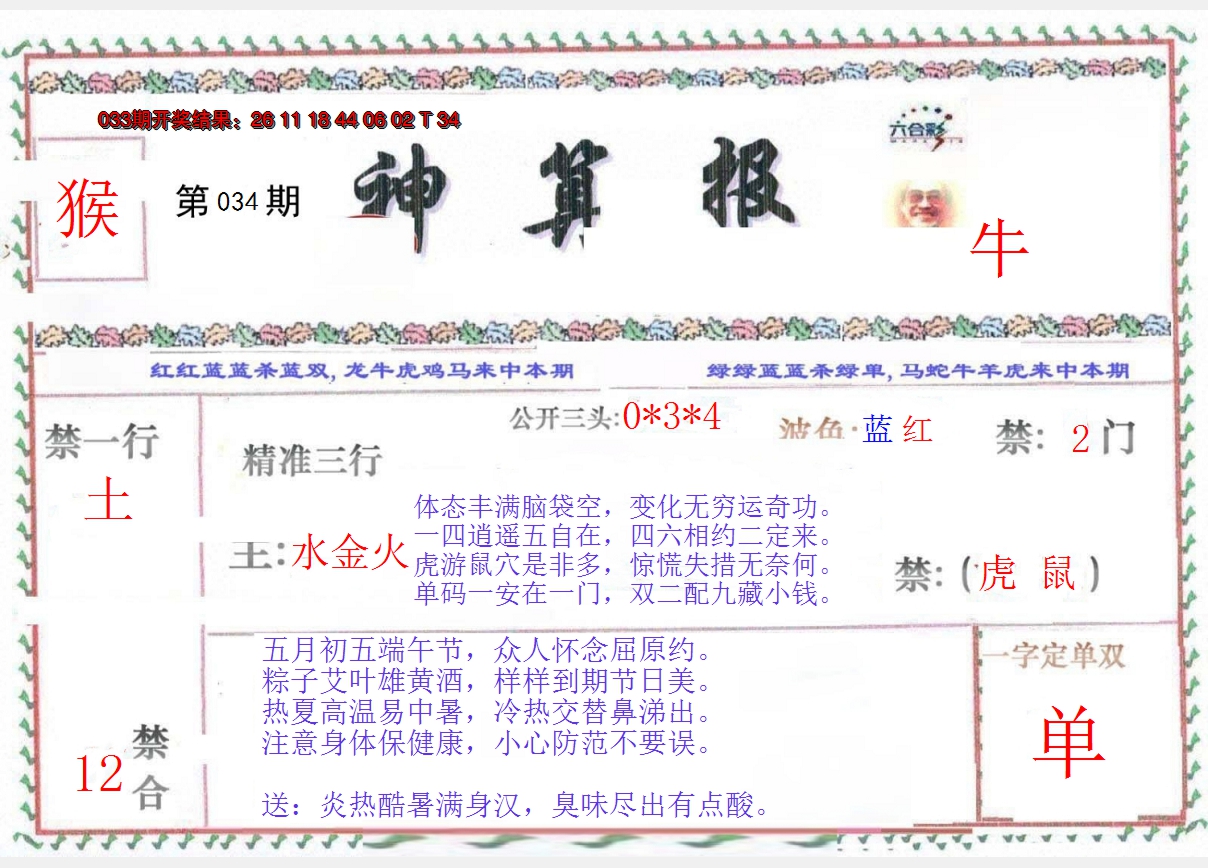 033期开奖结果：26 11 18 44 06 02 T 34
六合彩
猴
第 034 期
神算报
牛
红红蓝蓝杀蓝双, 龙牛虎鸡马来中本期
绿绿蓝蓝杀绿单, 马蛇牛羊虎来中本期
禁一行
土
精准三行
公开三头:0*3*4
波色: 蓝 红
禁: 2 门
主: 水金火
体态丰满脑袋空，变化无穷运奇功。
一四逍遥五自在，四六相约二定来。
虎游鼠穴是非多，惊慌失措无奈何。
单码一安在一门，双二配九藏小钱。
禁: (虎 鼠)
禁合
12
五月初五端午节，众人怀念屈原约。
粽子艾叶雄黄酒，样样到期节日美。
热夏高温易中暑，冷热交替鼻涕出。
注意身体保健康，小心防范不要误。
送：炎热酷暑满身汉，臭味尽出有点酸。
一字定单双
单